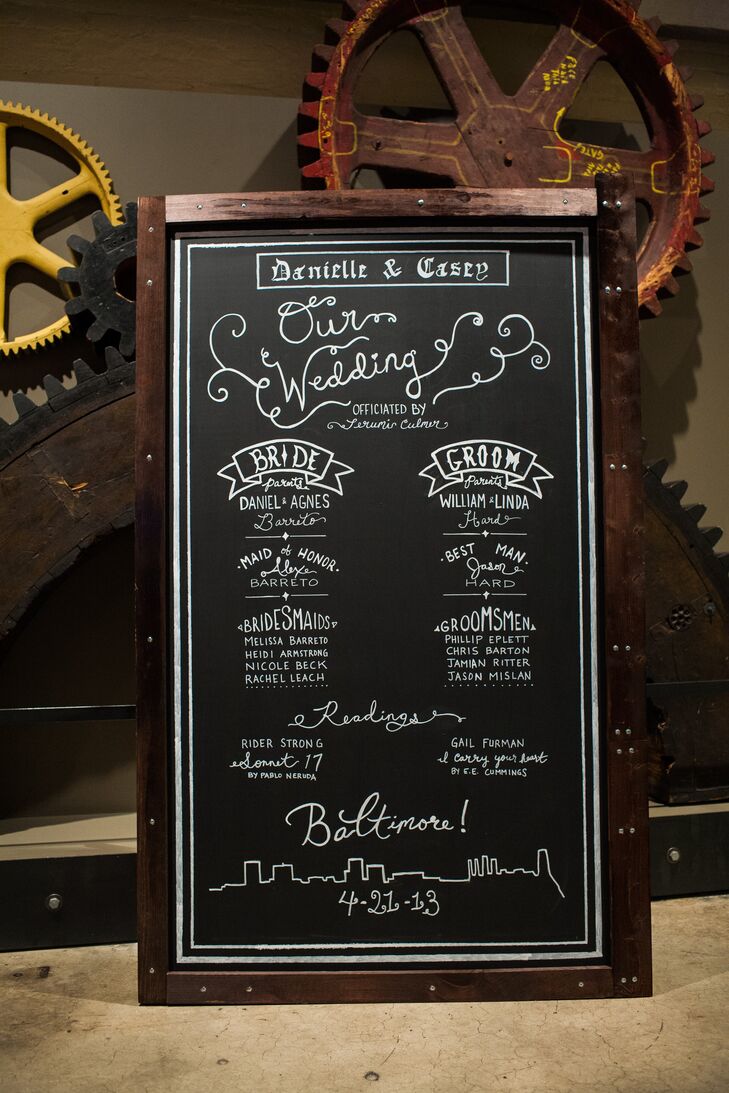 Danielle & Casey
Our
Wedding
OFFICIATED BY
Culmer
BRIDE
parents
DANIEL & AGNES
Barreto
MAID of HONOR
Alex
BARRETO
BRIDESMAIDS
MELISSA BARRETO
HEIDI ARMSTRONG
NICOLE BECK
RACHEL LEACH
GROOM
parents
WILLIAM & LINDA
Hard
BEST MAN
Jason
HARD
GROOMSMEN
PHILLIP EPLETT
CHRIS BARTON
JAMIAN RITTER
JASON MISLAN
Readings
RIDER STRONG
Sonnet 17
BY PABLO NERUDA
GAIL FURMAN
i carry your heart
BY E.E. CUMMINGS
Baltimore!
4-21-13